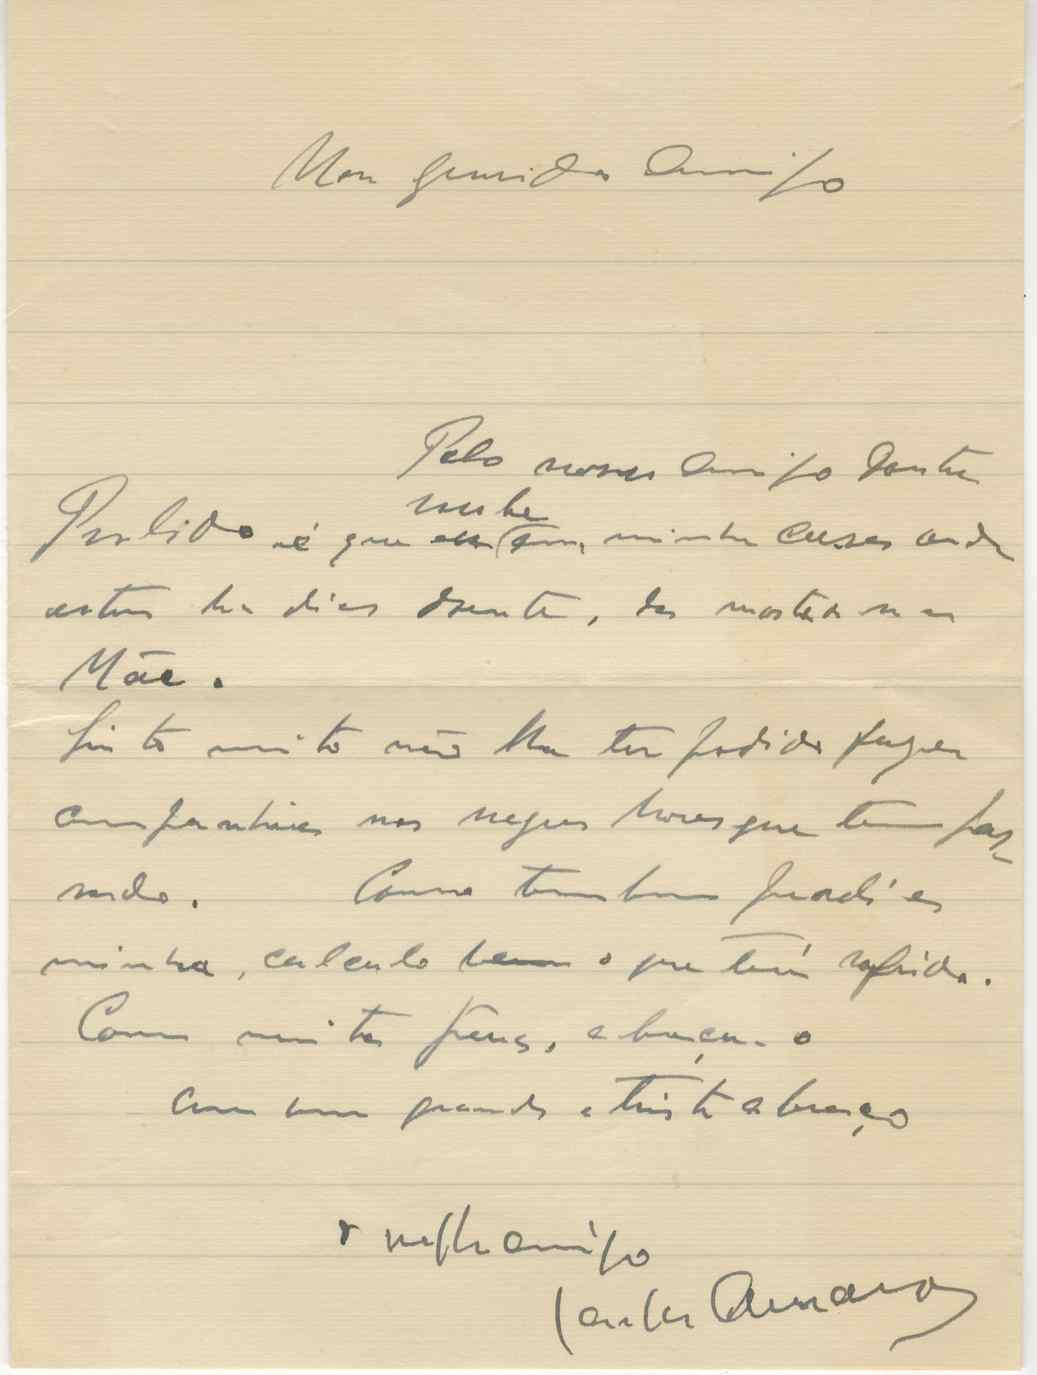 Meu querido Amigo
Pelo nosso Amigo
soube
é que em minha casa onde
estou ha dias doente, da morte da sua
Mãe.
Sinto muito não lhe ter podido fazer
companhia nas negras horas que tem pas-
sado. Como tambem perdi a
minha, calculo bem o que terá sofrido.
Com muita pena, abraça-o
com um grande e triste abraço
o velho amigo
Carlos Amaro